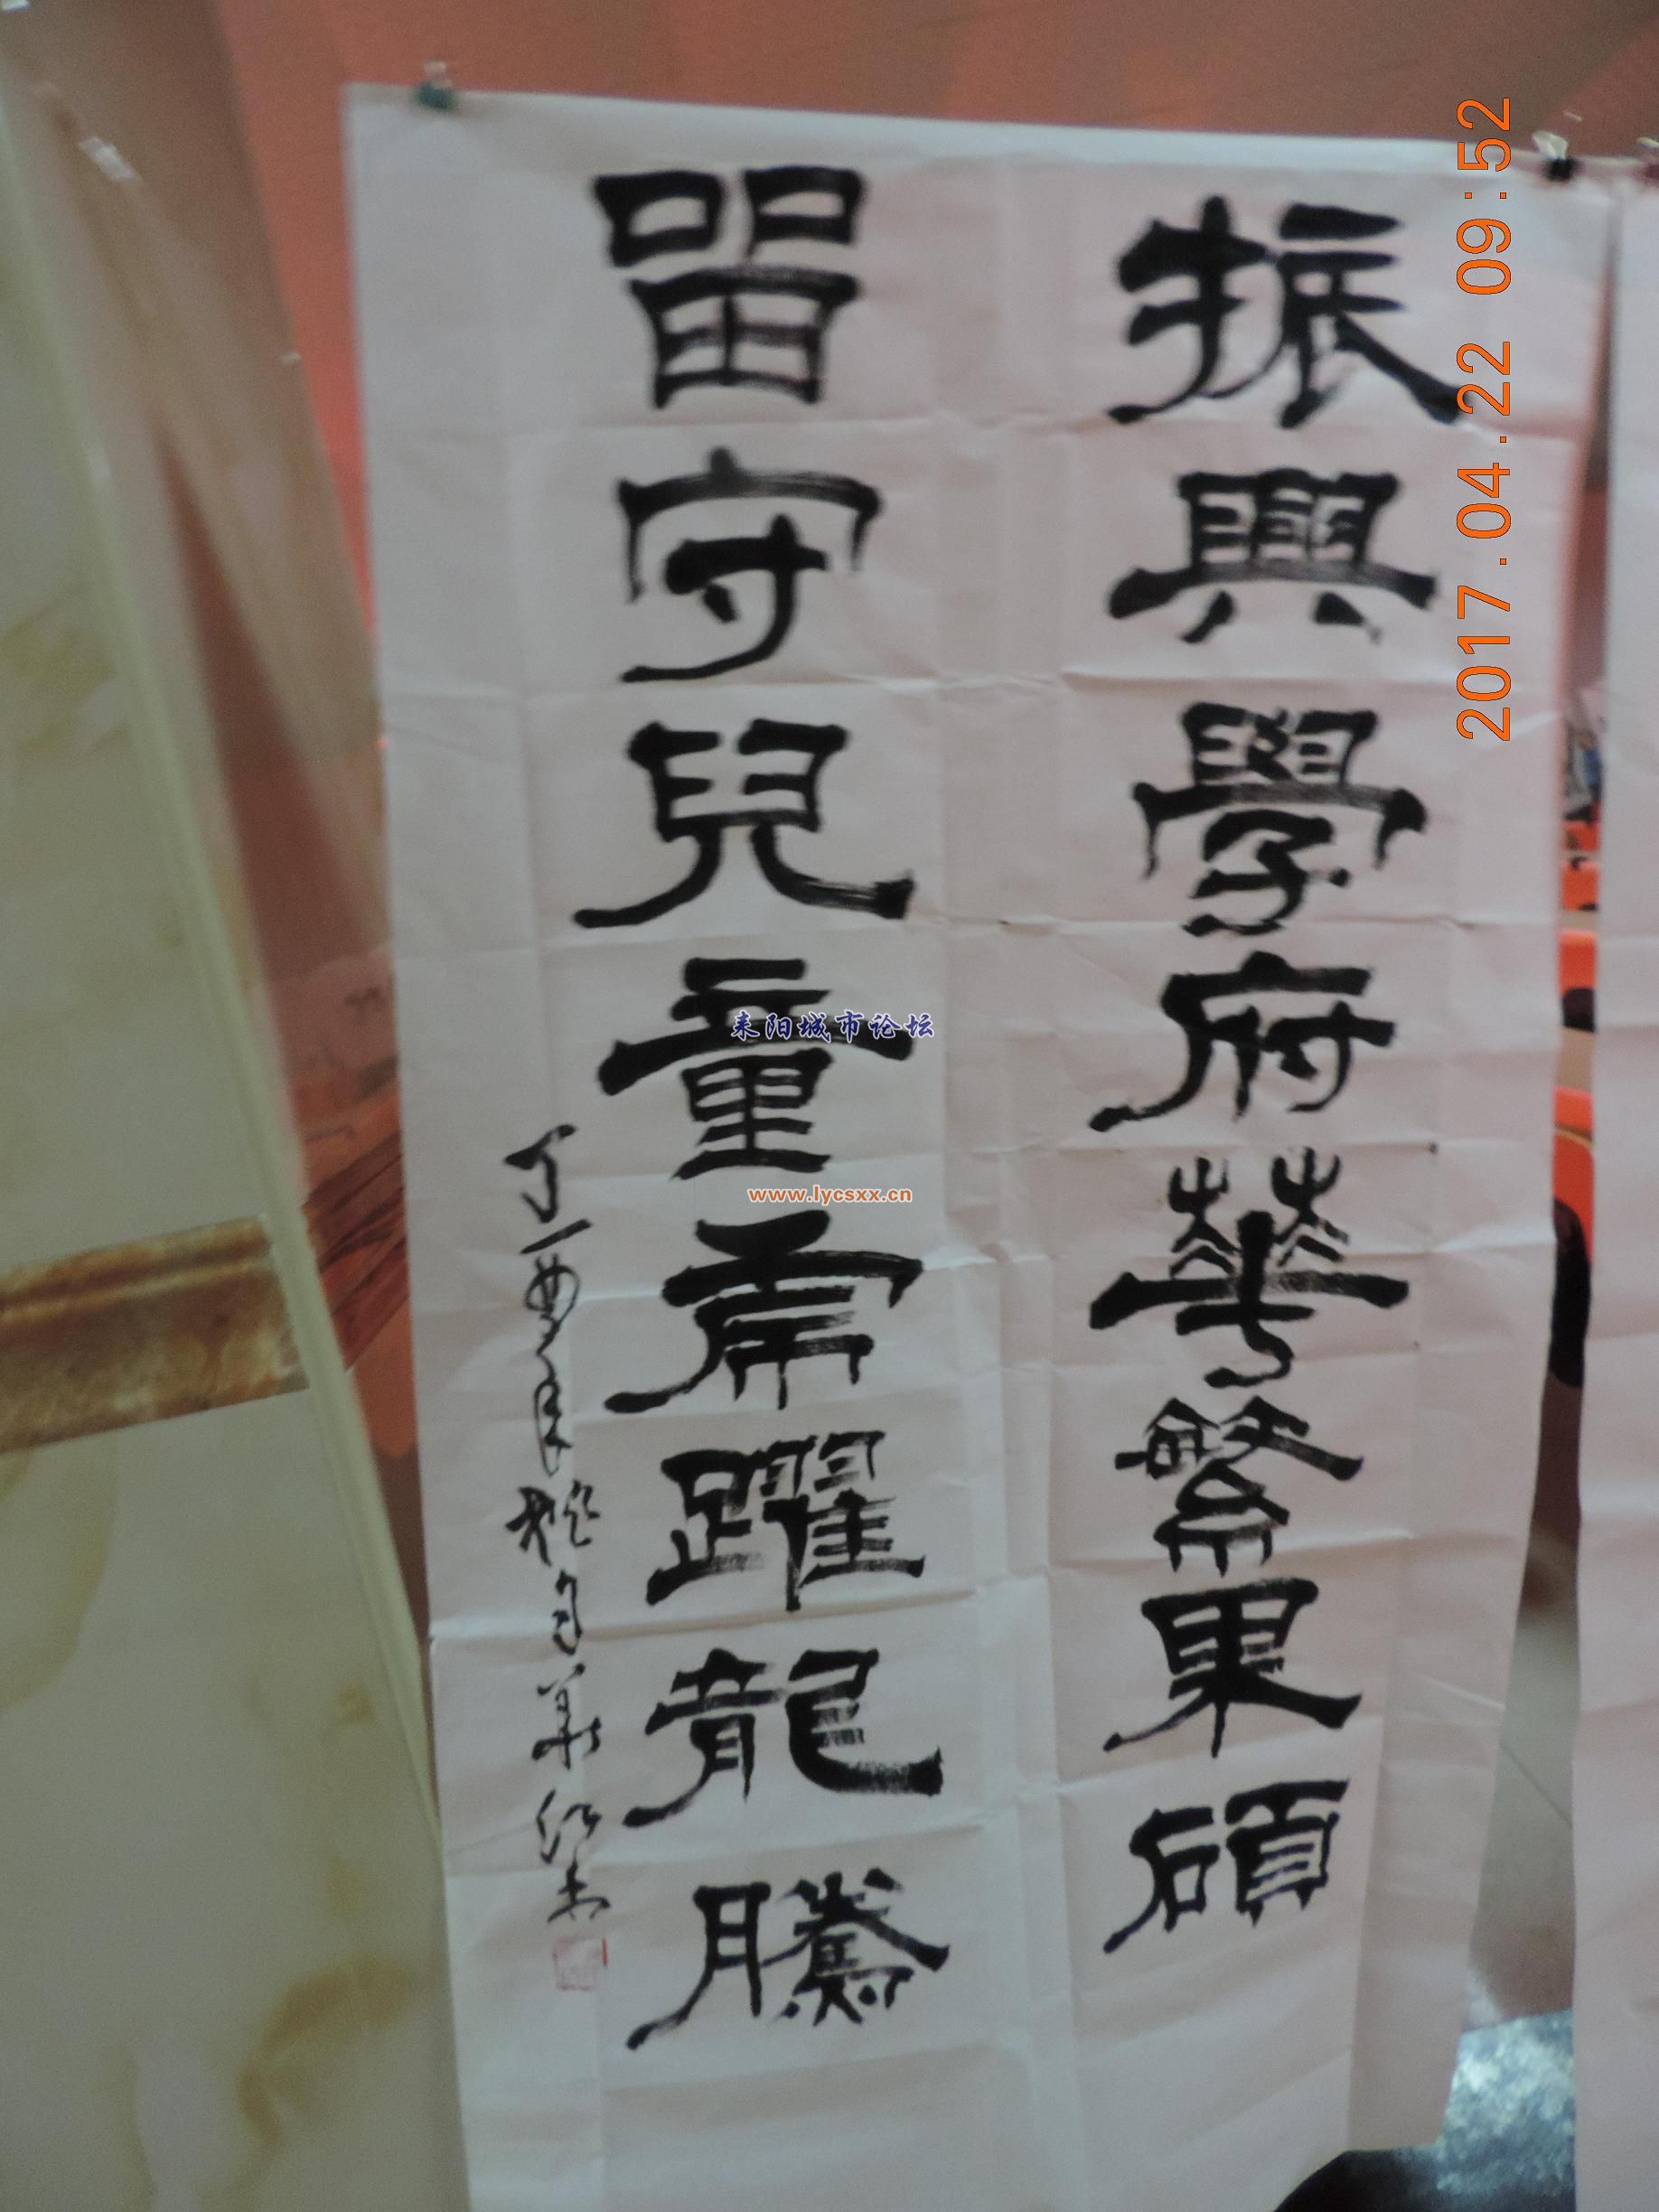 振興學府華繁果碩
留守兒童虎躍龍騰
丁酉年
2017.04.22 09:52
耒阳城市论坛
www.lycsxx.cn